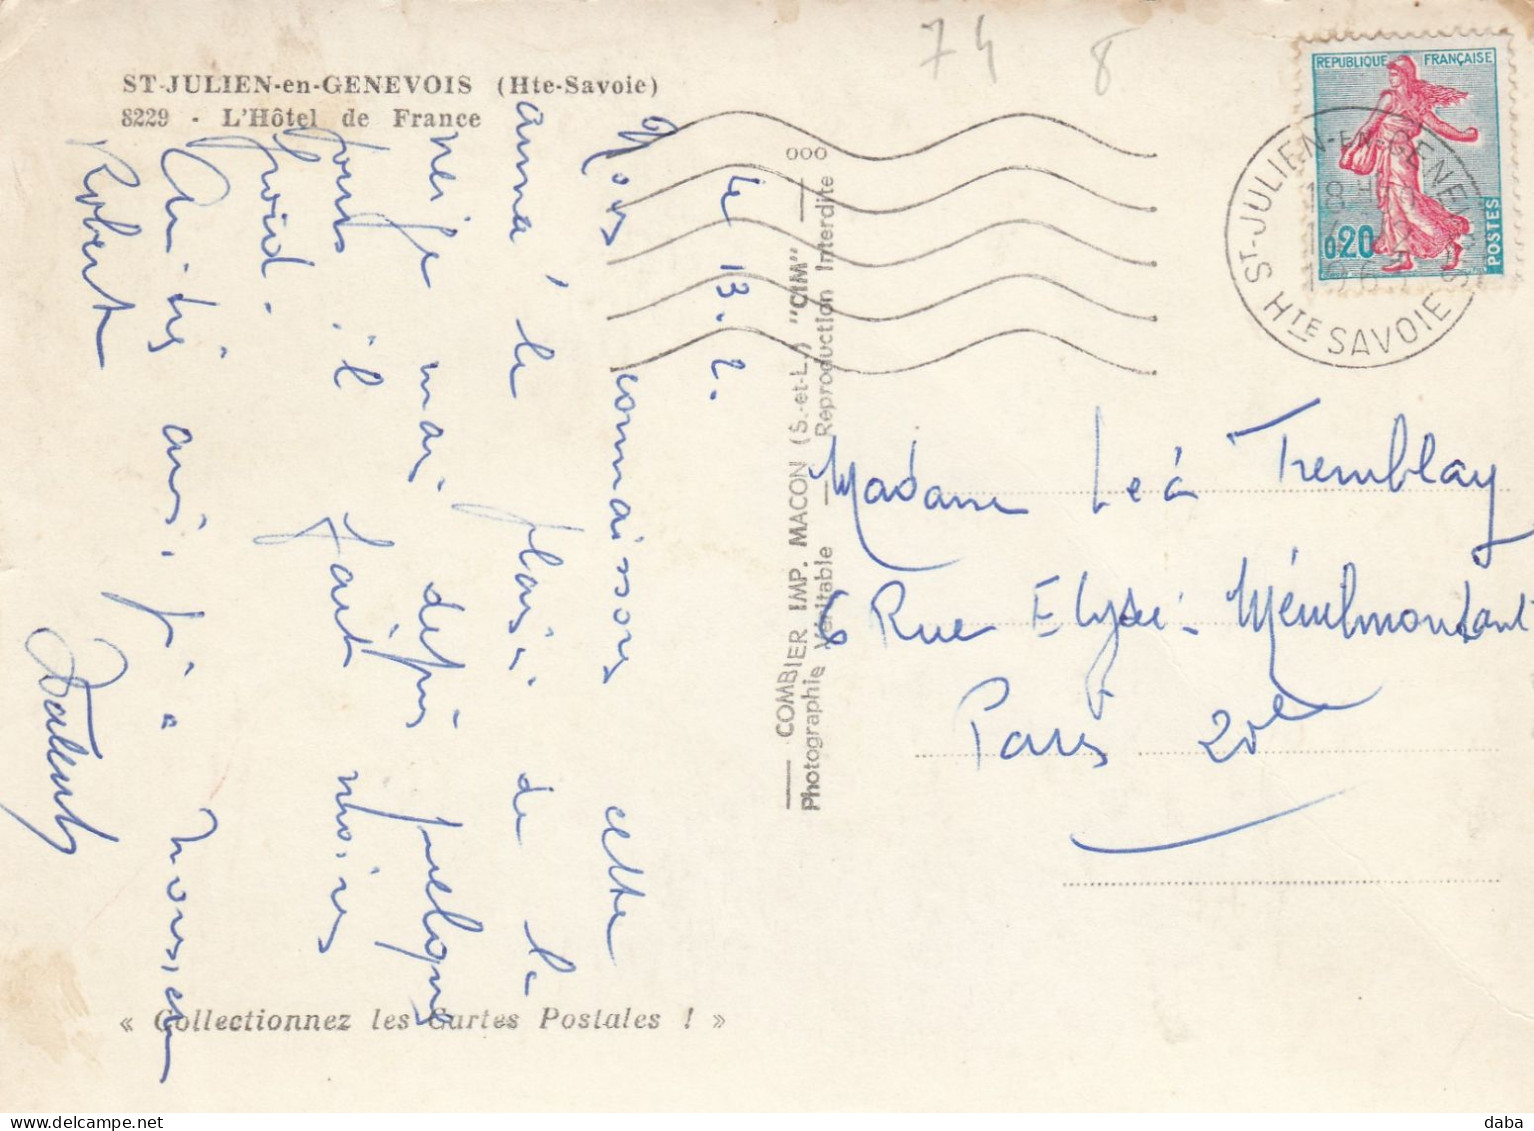 ST-JULIEN-en-GENEVOIS (Hte-Savoie)
8229 - L'Hôtel de France
74 8
REPUBLIQUE FRANÇAISE
0,20
POSTES
ST-JULIEN-EN-GENEVOIS
18 H
196
HTE SAVOIE
ooo
— COMBIER IMP. MACON (S.-et-L.) "CIM" —
Photographie Véritable — Reproduction Interdite
le 13.2.
Nous connaissons cette
année le plaisir de la
neige mais depuis quelques
jours il fait moins
froid.
Amitiés ainsi qu'à Monsieur
Robert
Madame Léa Tremblay
6 Rue Elysée-Ménilmontant
Paris 20e
« Collectionnez les Cartes Postales ! »
daba